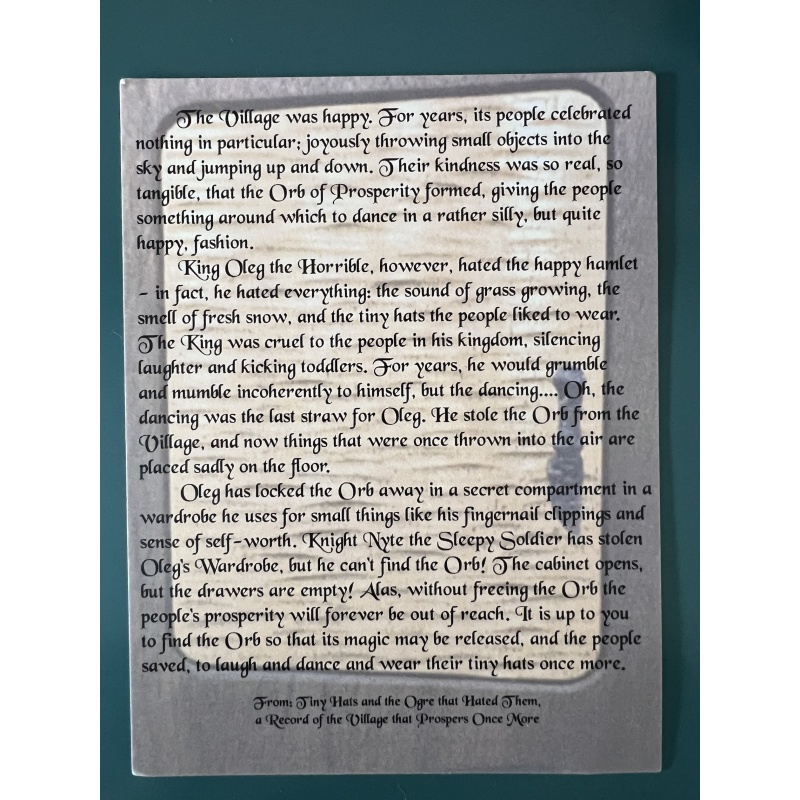 The Village was happy. For years, its people celebrated
nothing in particular; joyously throwing small objects into the
sky and jumping up and down. Their kindness was so real, so
tangible, that the Orb of Prosperity formed, giving the people
something around which to dance in a rather silly, but quite
happy, fashion.
King Oleg the Horrible, however, hated the happy hamlet
- in fact, he hated everything: the sound of grass growing, the
smell of fresh snow, and the tiny hats the people liked to wear.
The King was cruel to the people in his kingdom, silencing
laughter and kicking toddlers. For years, he would grumble
and mumble incoherently to himself, but the dancing.... Oh, the
dancing was the last straw for Oleg. He stole the Orb from the
Village, and now things that were once thrown into the air are
placed sadly on the floor.
Oleg has locked the Orb away in a secret compartment in a
wardrobe he uses for small things like his fingernail clippings and
sense of self-worth. Knight Nyte the Sleepy Soldier has stolen
Oleg's Wardrobe, but he can't find the Orb! The cabinet opens,
but the drawers are empty! Alas, without freeing the Orb the
people's prosperity will forever be out of reach. It is up to you
to find the Orb so that its magic may be released, and the people
saved, to laugh and dance and wear their tiny hats once more.
From: Tiny Hats and the Ogre that Hated Them,
a Record of the Village that Prospers Once More